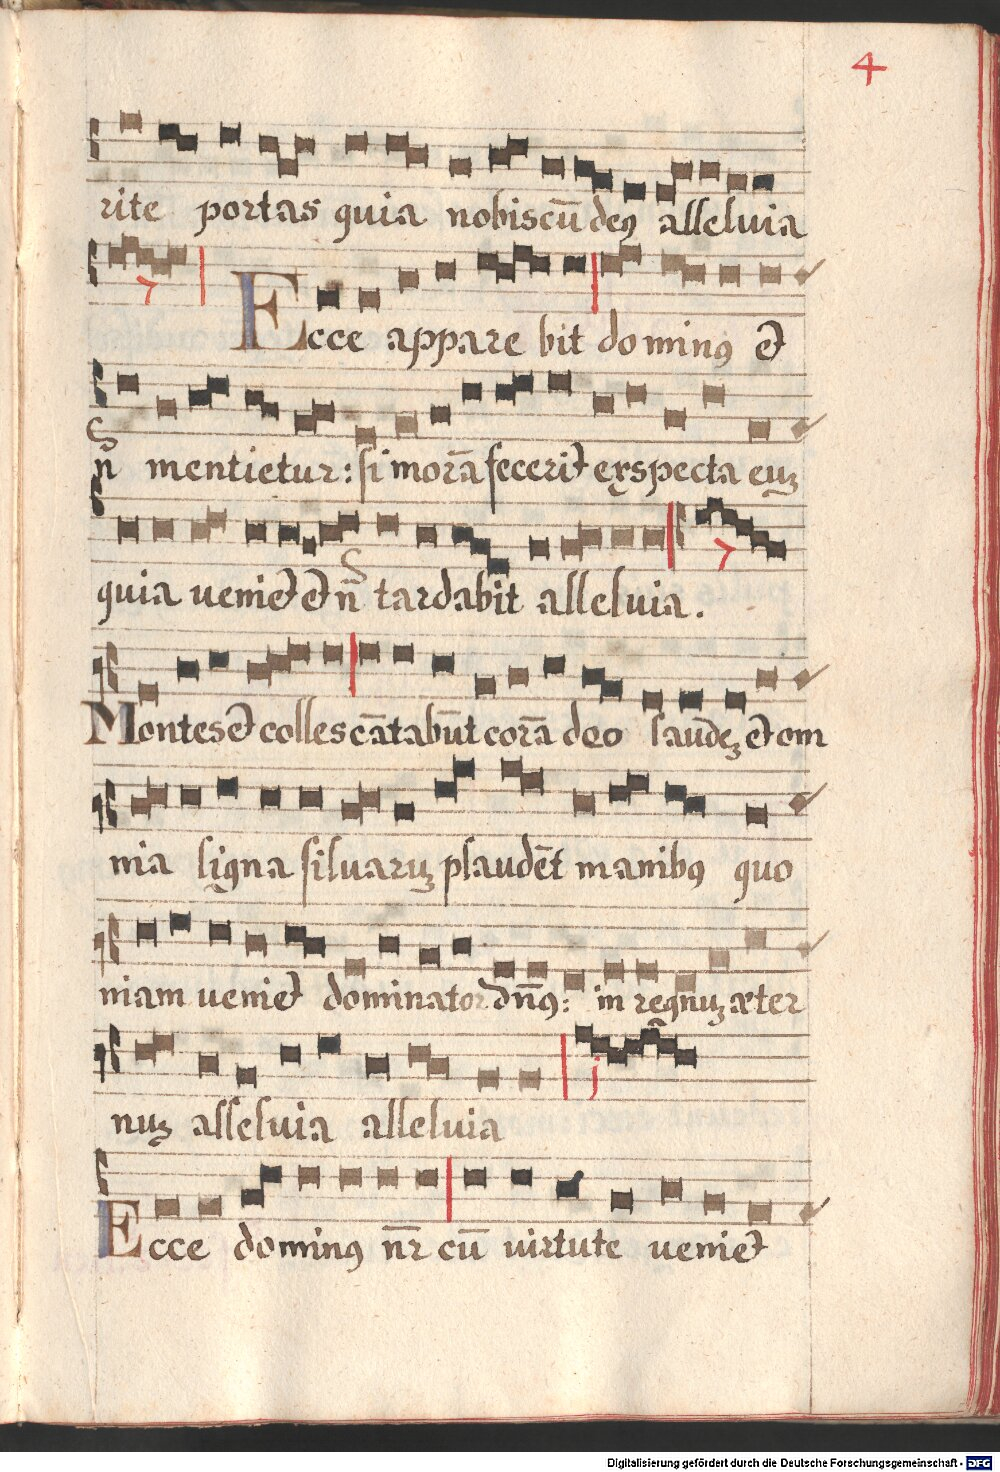 4
rite portas quia nobiscū deꝰ alleluia
7
Ecce apparebit dominꝰ et
n̄ mentietur: si morā fecerit exspecta euꝫ
quia veniet et n̄ tardabit alleluia.
7
Montes et colles cātabūt corā deo laudeꝫ et om
nia ligna siluaruꝫ plaudēt manibꝰ quo
niam veniet dominator dn̄ꝰ: in regnuꝫ æter
nuꝫ alleluia alleluia
j
Ecce dominꝰ nr̄ cū virtute veniet
Digitalisierung gefördert durch die Deutsche Forschungsgemeinschaft - DFG